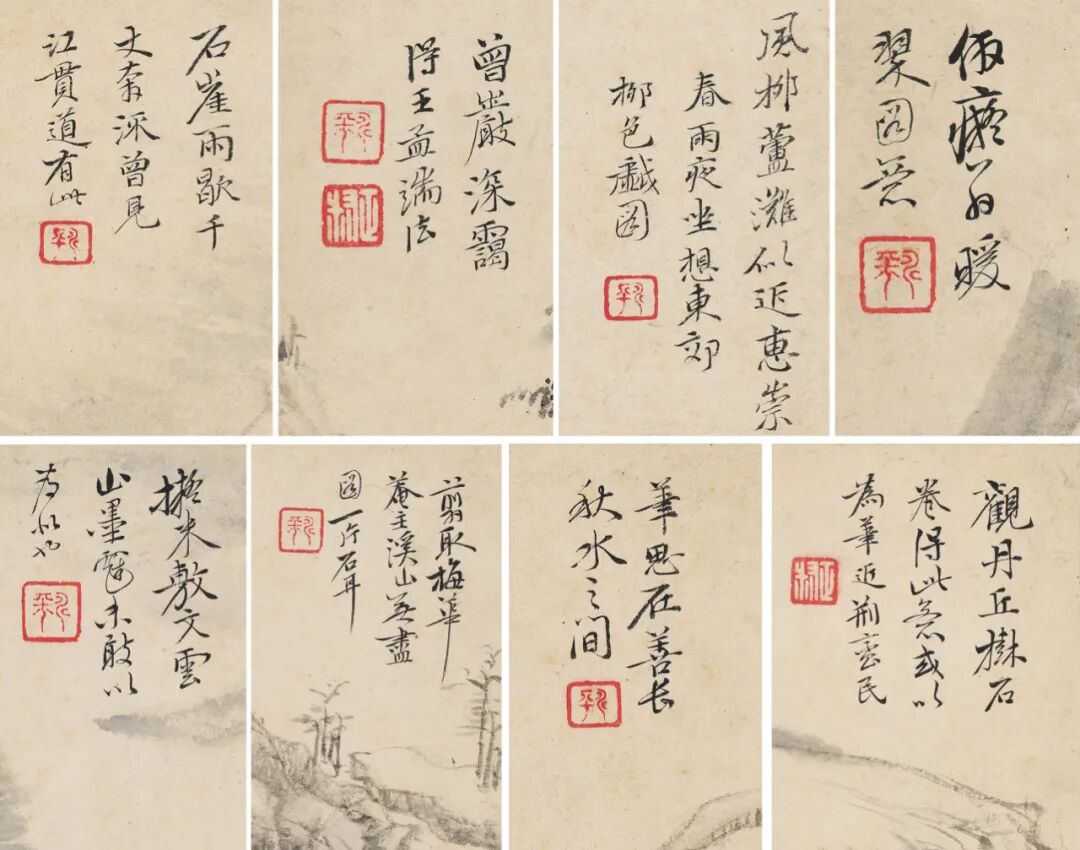 石崖雨歇千
丈奔深曾見
江貫道有此
曾巖深靄
得王孟端法
風柳蘆灘似近惠崇
春雨夜坐想東郊
柳色戲圖
倣癡翁暖
翠圖意
擬米敷文雲
山墨戲未敢以
為似也
翦取梅華
菴主溪山無盡
圖一片石耳
筆思在善長
秋水之間
觀丹丘樹石
卷得此意或以
為筆近荊蠻民